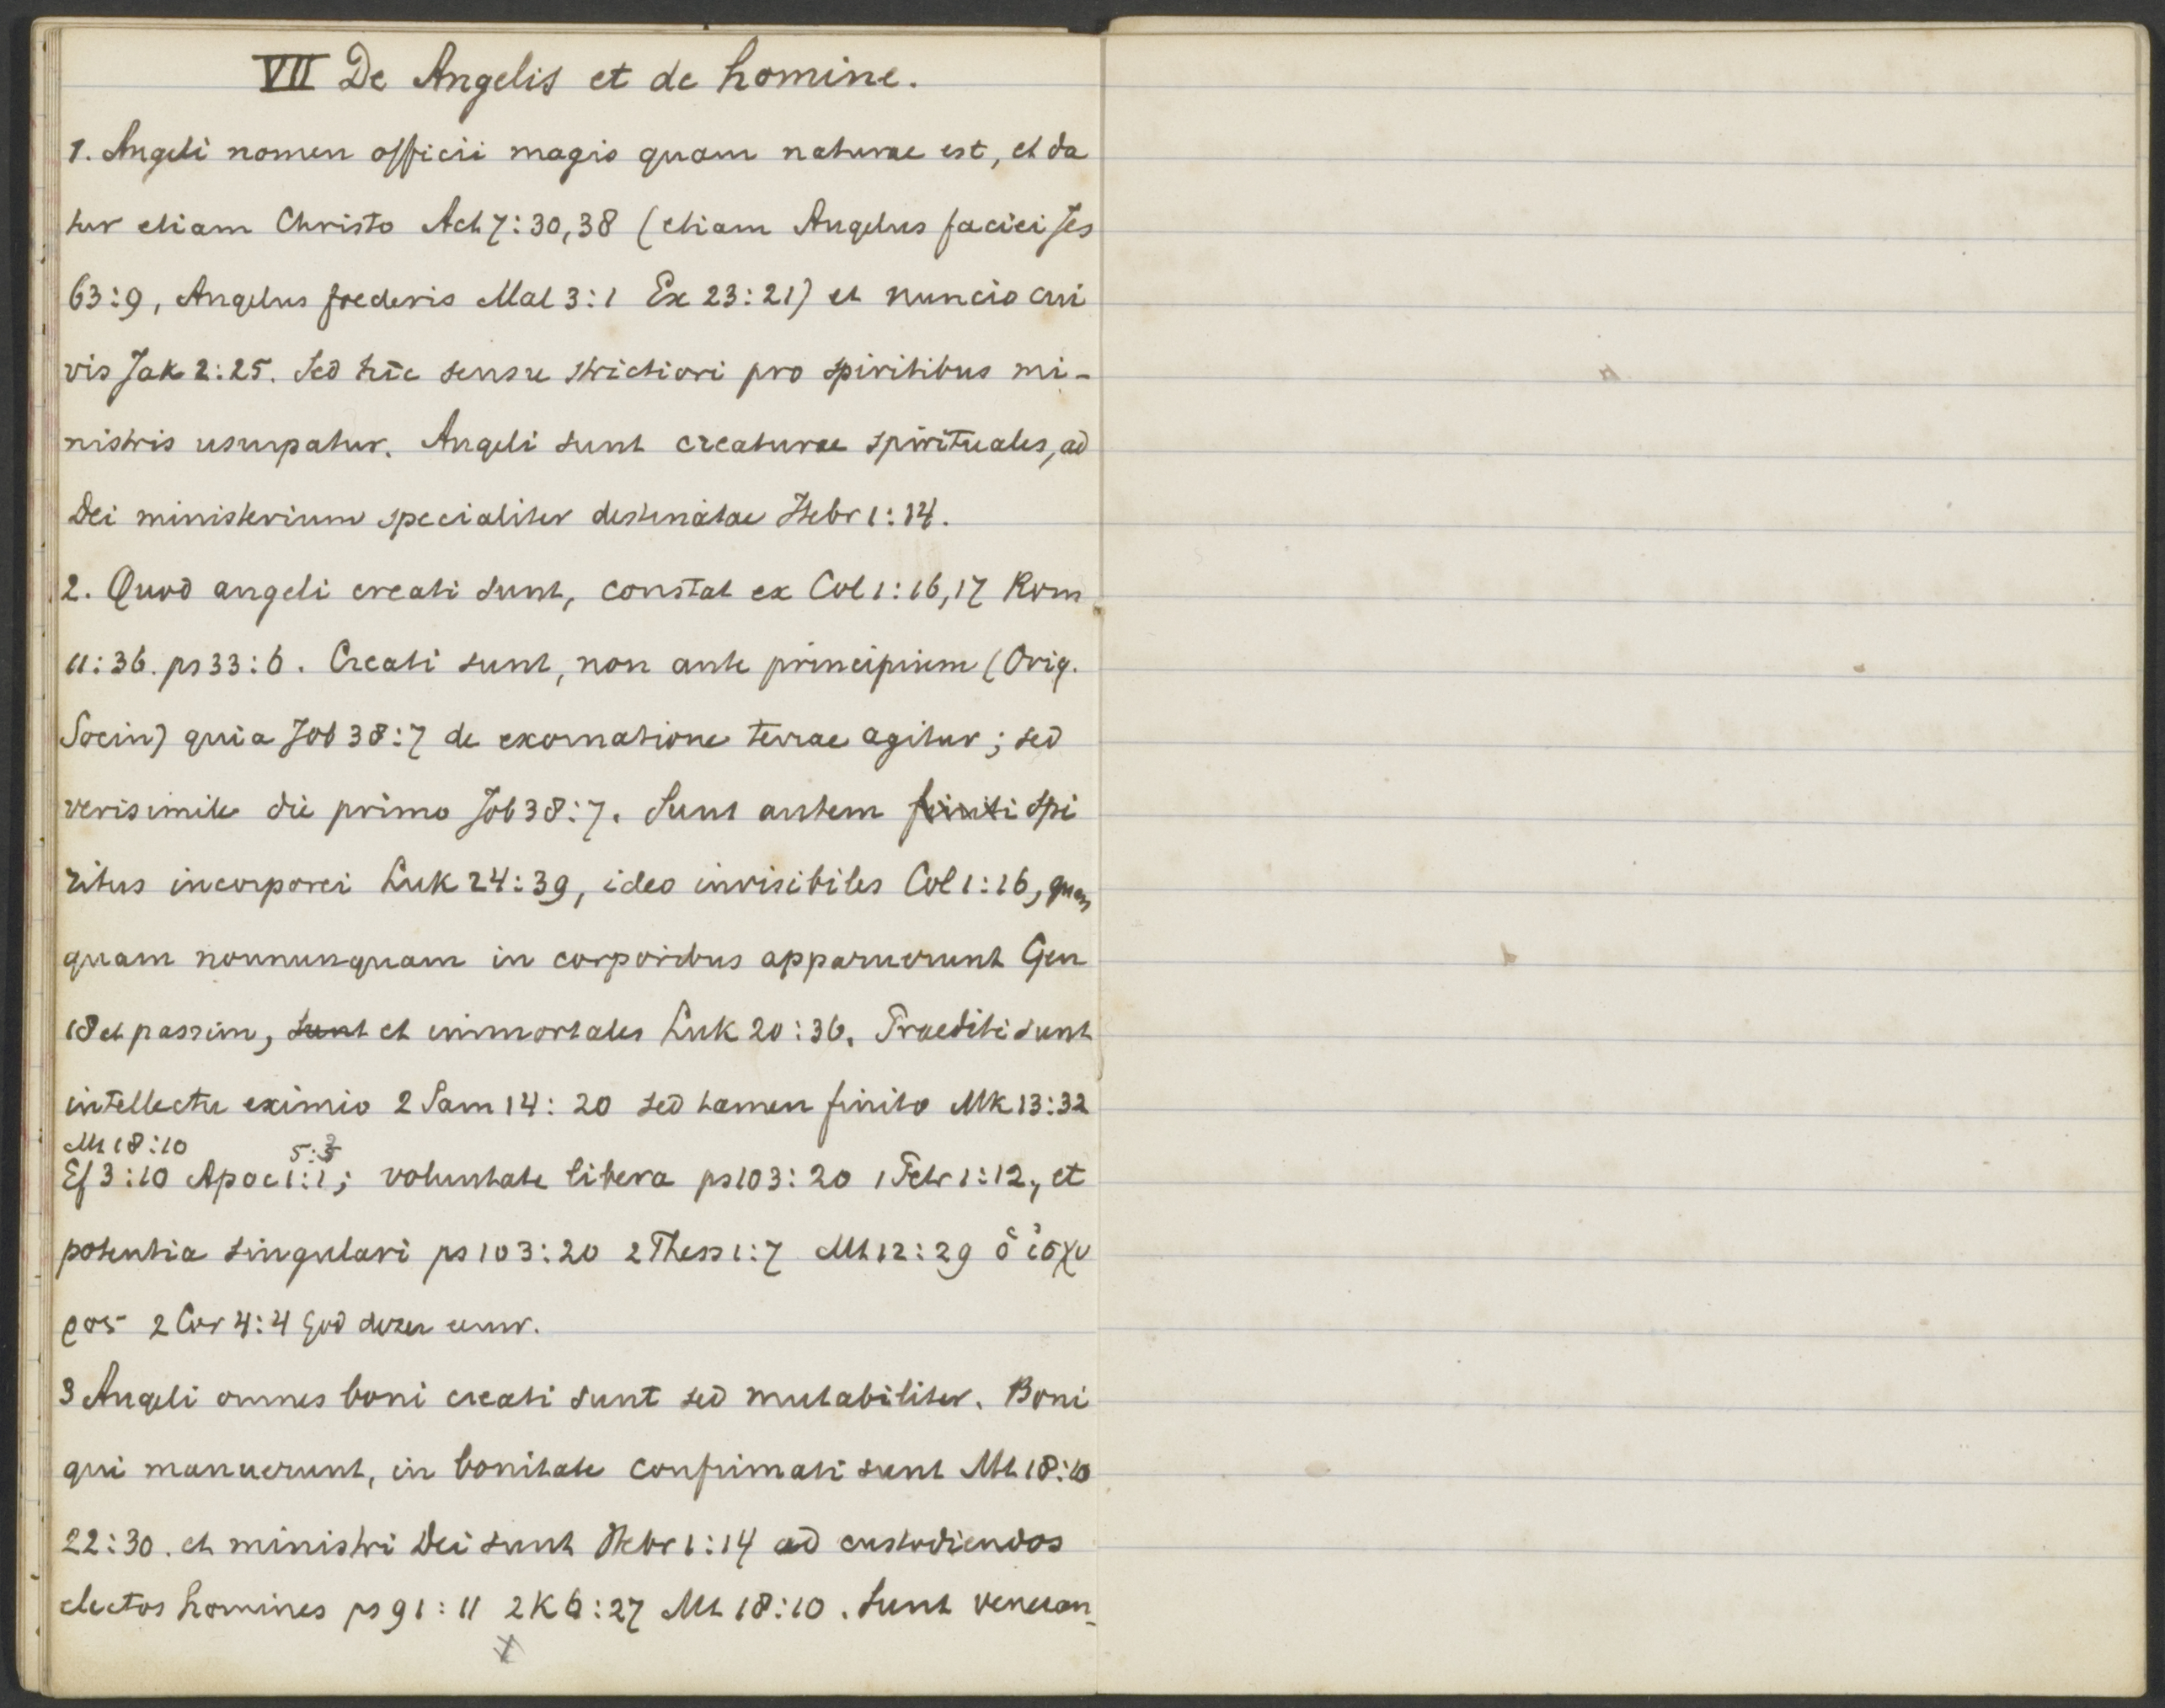 VII De Angelis et de homine.
1. Angeli nomen officii magis quam naturae est, et da
tur etiam Christo Act 7:30,38 (etiam Angelus faciei Jes
63:9, Angelus foederis Mal 3:1 Ex 23:21) et nuncio cui
vis Jak 2:25. Sed hic sensu strictiori pro spiritibus mi-
nistris usurpatur. Angeli sunt creaturae spirituales, ad
Dei ministerium specialiter destinatae Hebr 1:14.
2. Quod angeli creati sunt, constat ex Col 1:16,17 Rom
11:36. ps 33:6. Creati sunt, non ante principium (Orig.
Socin) quia Job 38:7 de exornatione terrae agitur; sed
verisimile die primo Job 38:7. Sunt autem finiti spi
ritus incorporei Luk 24:39, ideo invisibiles Col 1:16, quam
quam nonnunquam in corporibus apparuerunt Gen
18 et passim, sunt et immortales Luk 20:36. Praediti sunt
intellectu eximio 2 Sam 14:20 sed tamen finito Mk 13:32
Mt 18:10 5:3
Ef 3:10 Apoc 1:1; voluntate libera ps 103:20 1 Petr 1:12, et
potentia singulari ps 103:20 2 Thess 1:7 Mt 12:29 ὁ ἰσχυ
ρος 2 Cor 4:4 God dezer eeuw.
3 Angeli omnes boni creati sunt sed mutabiliter. Boni
qui manuerunt, in bonitate confirmati sunt Mt 18:10
22:30. et ministri Dei sunt Hebr 1:14 ad custodiendos
electos homines ps 91:11 2K 6:27 Mt 18:10. Sunt veneran-